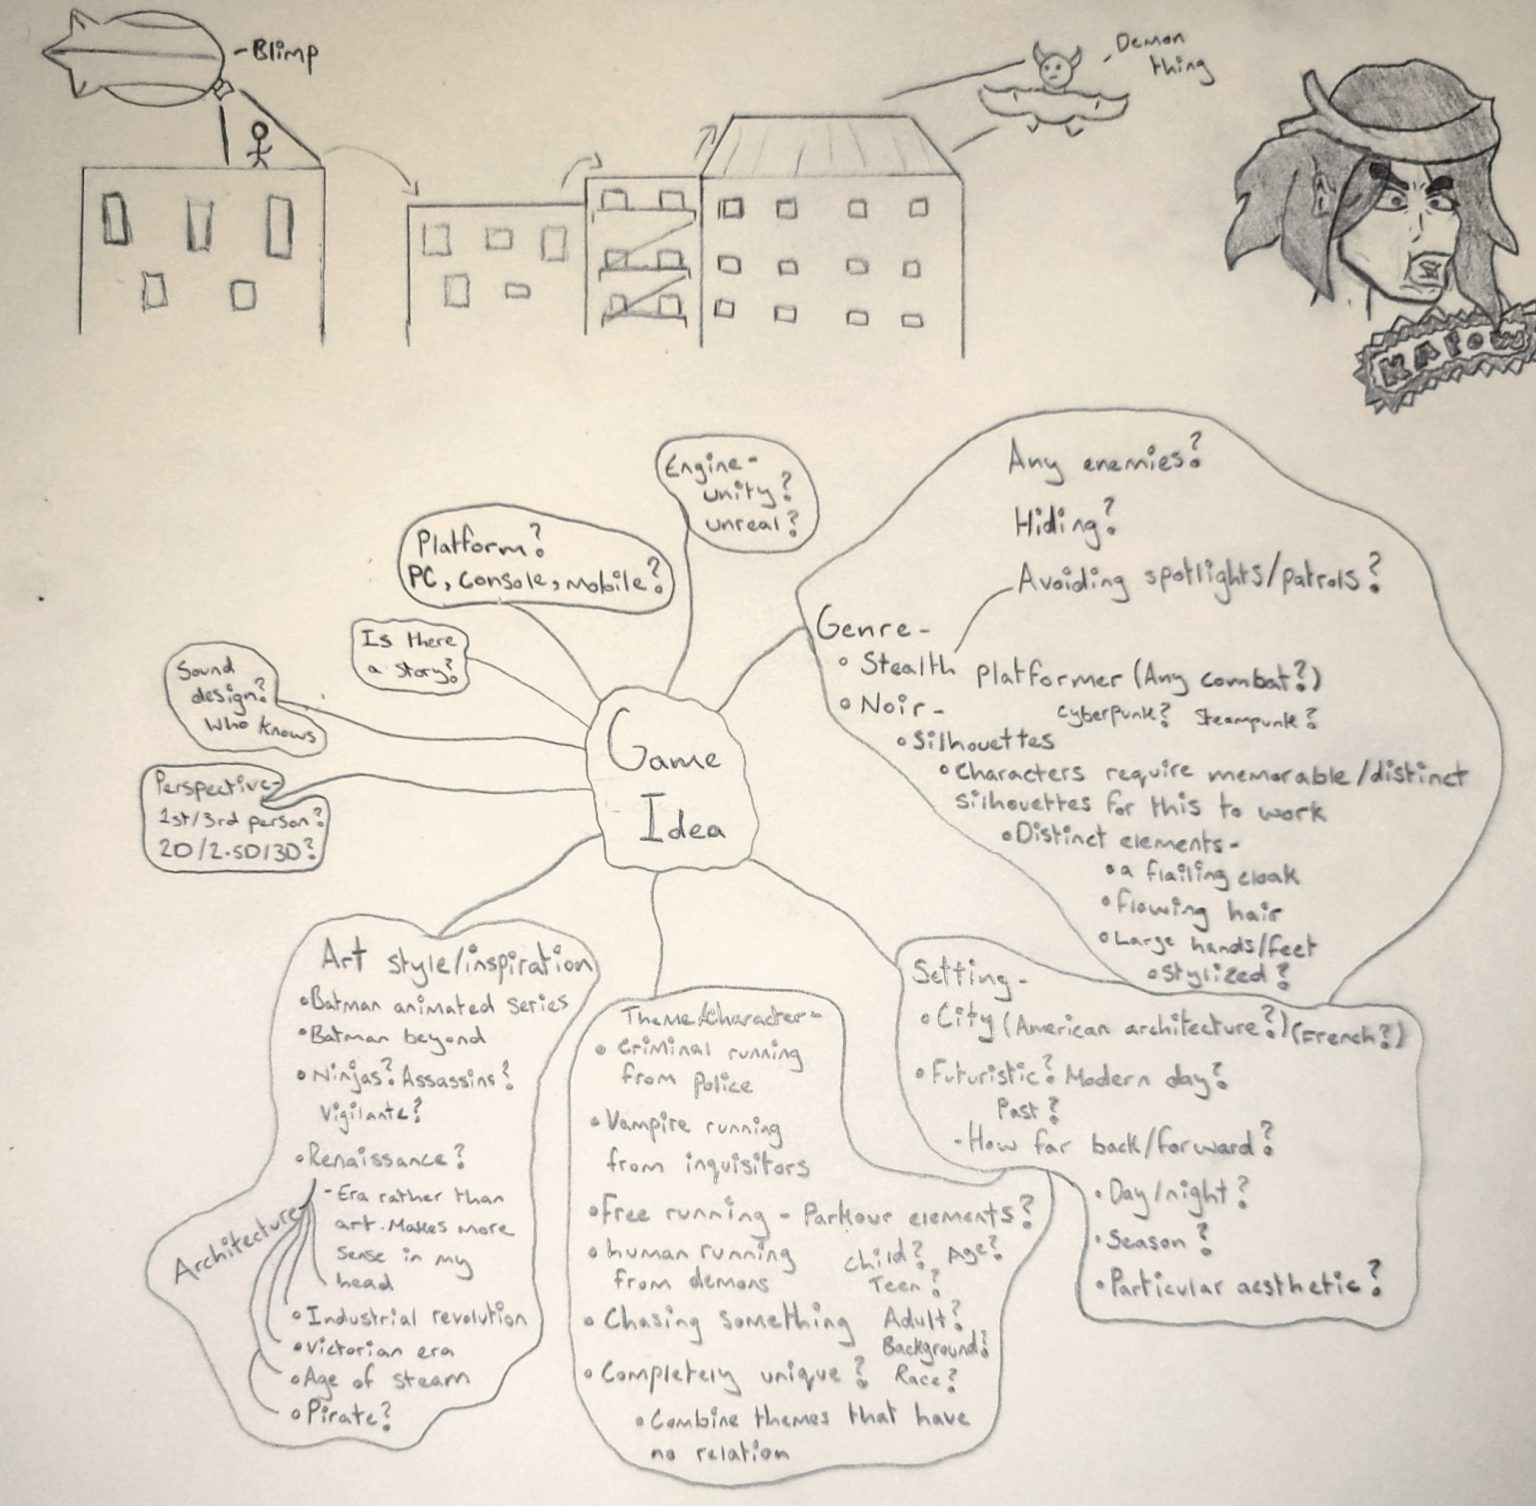 -Blimp
-Demon
thing
KAPOW
Engine-
unity?
unreal?
Platform?
PC, Console, mobile?
Is there
a story?
Sound
design?
Who knows
Perspective-
1st/3rd person?
2D/2.5D/3D?
Game
Idea
Any enemies?
Hiding?
Avoiding spotlights/patrols?
Genre-
• Stealth platformer (Any combat?)
• Noir-
Cyberpunk? Steampunk?
• Silhouettes
• Characters require memorable/distinct
silhouettes for this to work
• Distinct elements-
• a flailing cloak
• flowing hair
• Large hands/feet
• Stylized?
Setting-
• City (American architecture?) (French?)
• Futuristic? Modern day?
Past?
-How far back/forward?
• Day/night?
• Season?
• Particular aesthetic?
Theme/Character-
• Criminal running
from police
• Vampire running
from inquisitors
• Free running - Parkour elements?
• human running
from demons
Child? Age?
Teen?
• Chasing something
Adult?
Background?
• Completely unique?
Race?
• Combine themes that have
no relation
Art style/inspiration
• Batman animated series
• Batman beyond
• Ninjas? Assassins?
Vigilante?
• Renaissance?
-Era rather than
art. Makes more
sense in my
head
Architecture
• Industrial revolution
• Victorian era
• Age of steam
• Pirate?